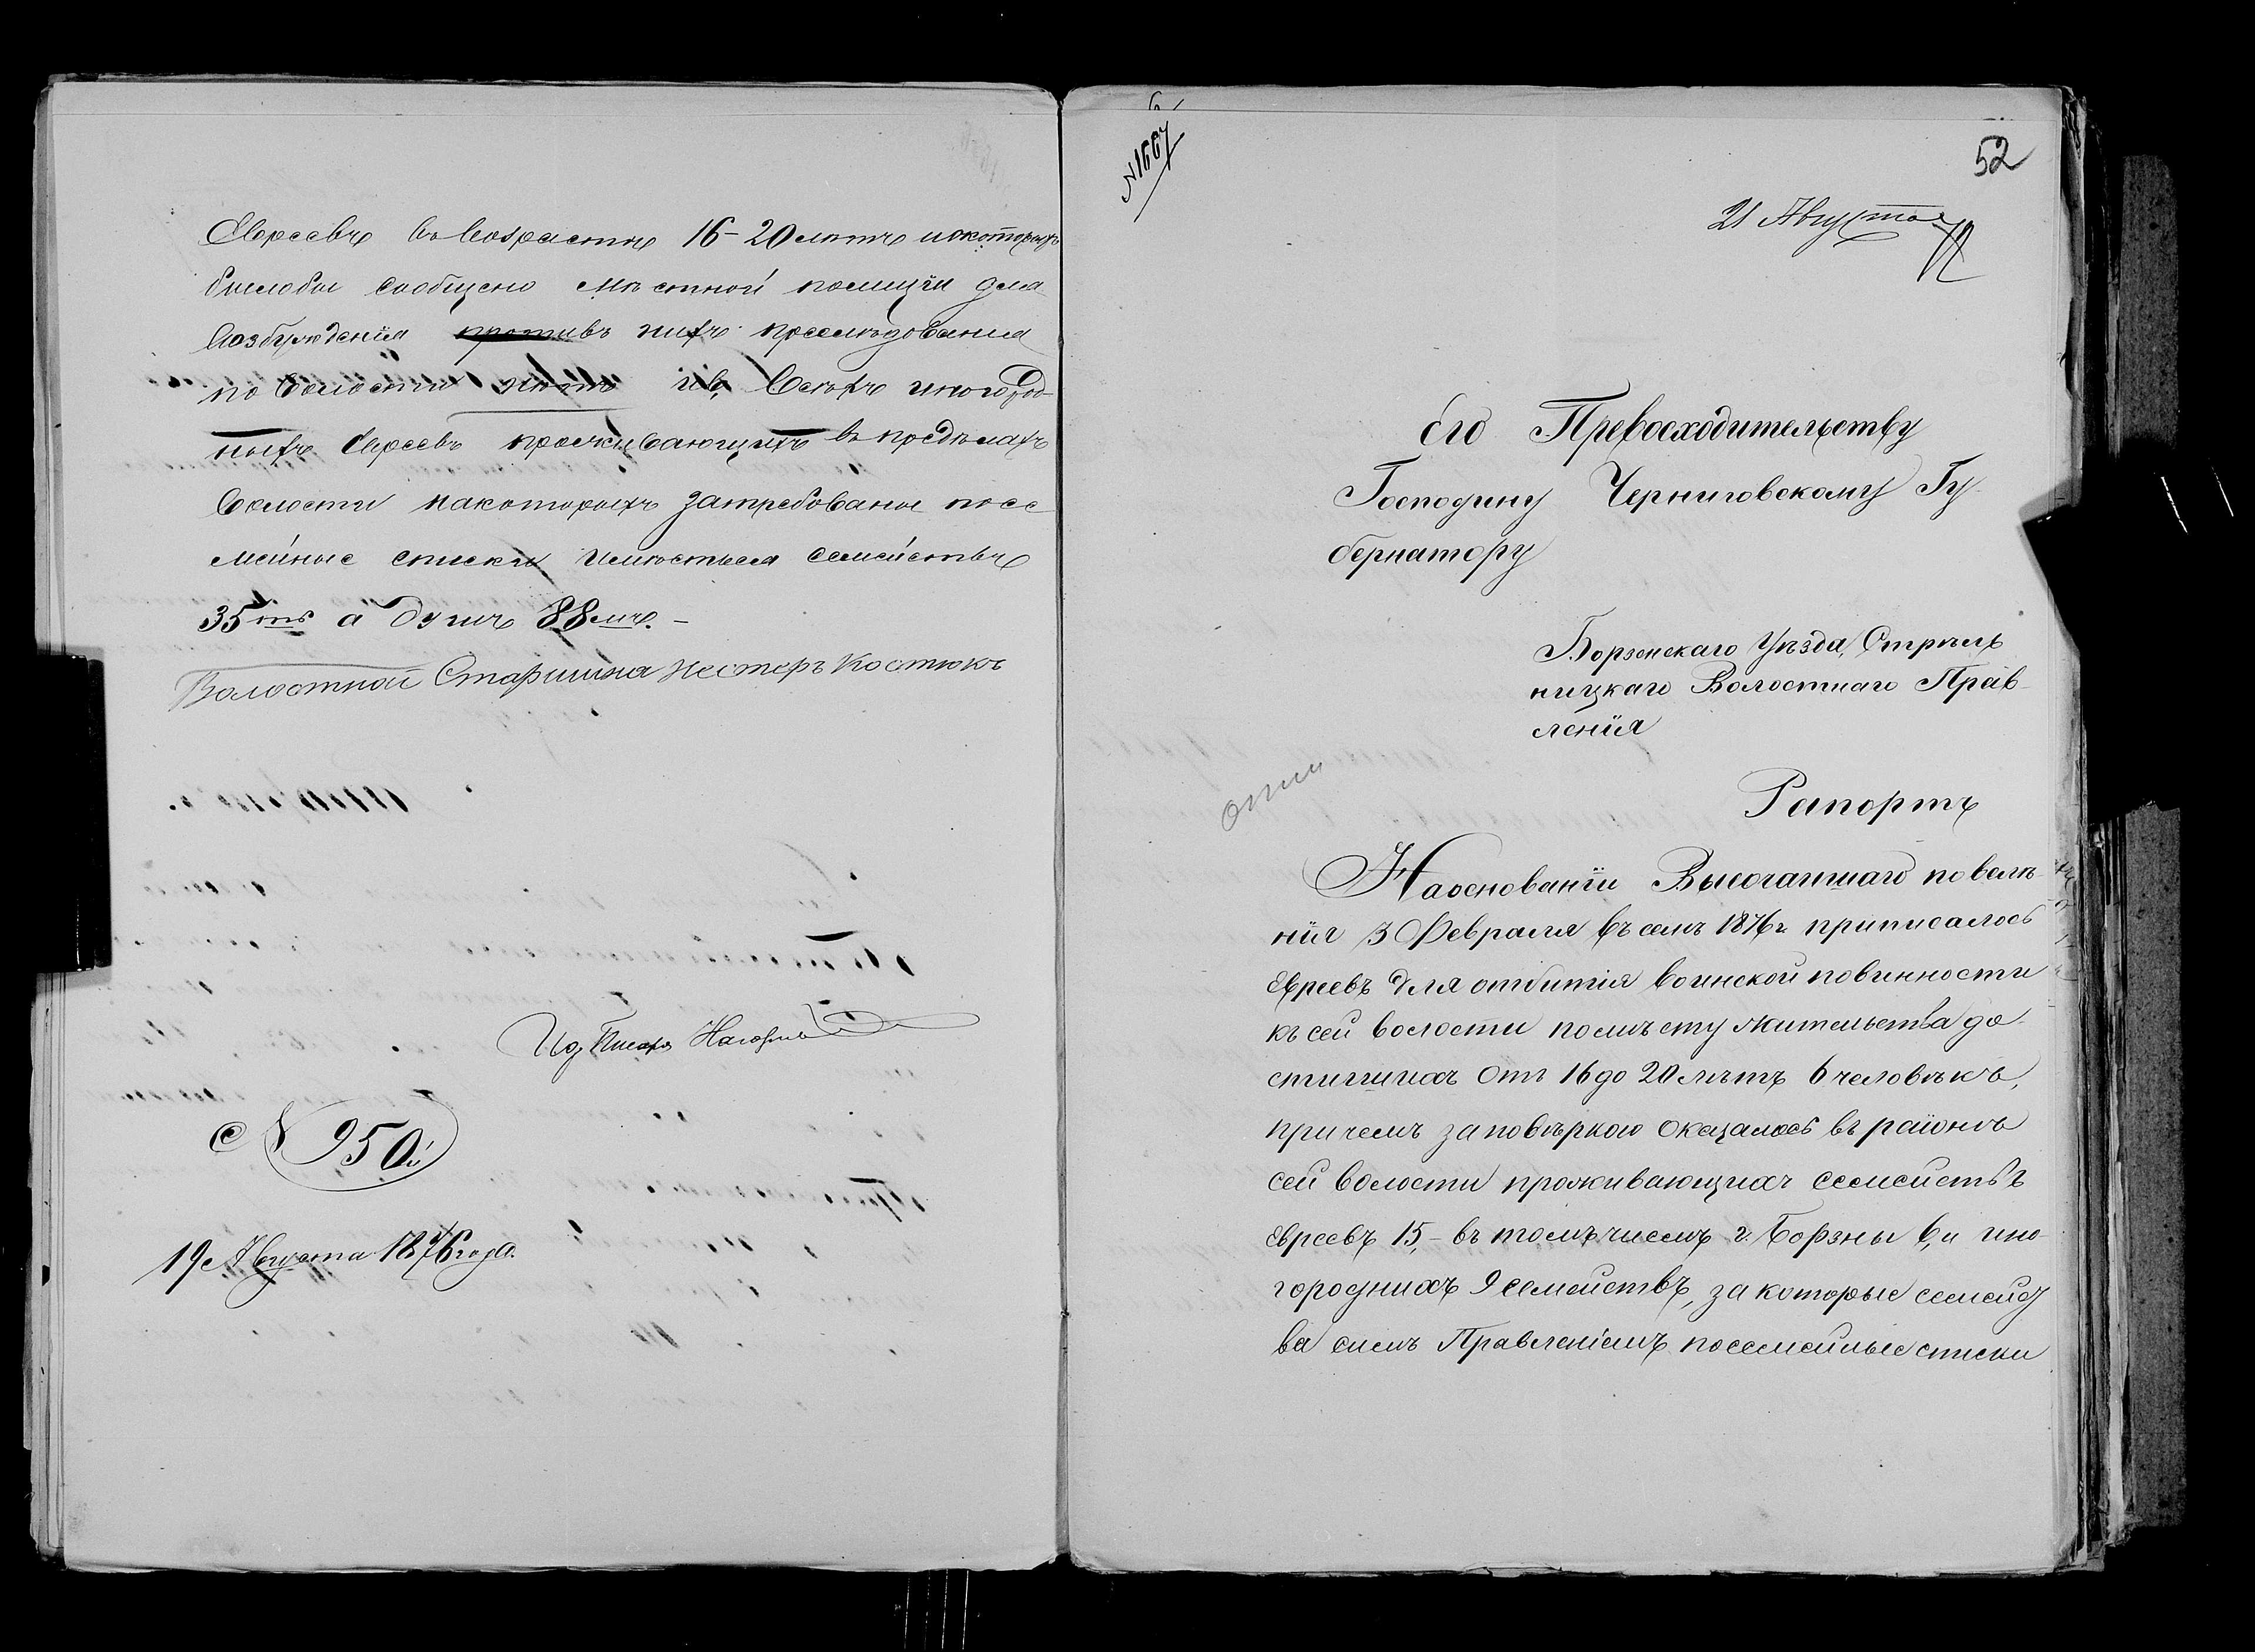 Евреевъ въ возрастѣ 16-20 лѣтъ и о которыхъ
было бы сообщено мѣстной полиціи для
возбужденія противъ нихъ преслѣдованія
по волости нѣтъ и в, всѣхъ иногород-
ныхъ Евреевъ проживающихъ въ предѣлахъ
волости на которыхъ затребованы посе
мейные списки имѣется семействъ
35ть а душъ 88мь. -
Волостной Старшина Нестеръ Костюкъ
Ид Писаря
№ 950й
19 Августа 1876 года.
№ 1667
52
21 Августа
Его Превосходительству
Господину Черниговскому Гу-
бернатору
Борзенскаго Уѣзда, Стрѣль
ницкаго Волостнаго Прав-
ленія
Рапортъ
На основаніи Высочайшаго повелѣ
нія 3 Февраля въ семъ 1876 г. приписалось
Евреевъ для отбытія воинской повинности
къ сей волости по мѣсту жительства до-
стигшихъ отъ 16 до 20 лѣтъ 6 человѣкъ,
причемъ за повѣркою оказалось въ районѣ
сей волости проживающихъ семействъ
Евреевъ 15, - въ томъ числѣ г. Борзны 6, и ино-
городнихъ 9 семействъ, за которые семейст
ва симъ Правленіемъ посемейные списки